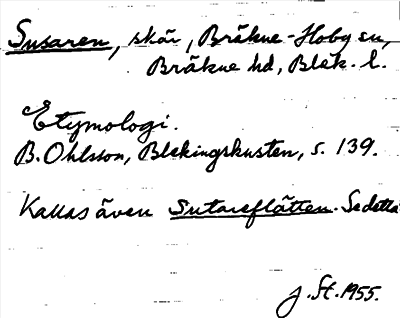 Susaren, skär, Bräkne-Hoby sn,
Bräkne hd, Blek. l.
Etymologi.
B. Ohlsson, Blekingskusten, s. 139.
Kallas även Sutareflätten. Se detta
J. St. 1955.